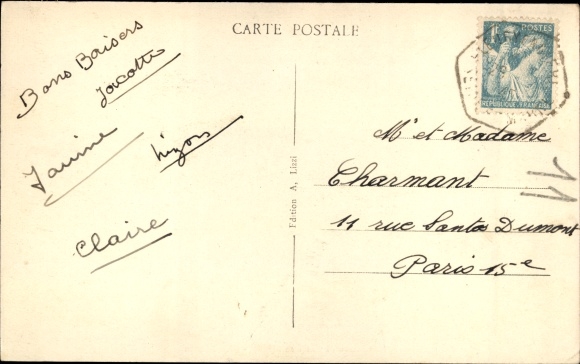 CARTE POSTALE
Bons Baisers
Jacotte
Janine
Claire
Edition A. Lizzi
1F POSTES
REPUBLIQUE FRANÇAISE
Mr et Madame
Charmant
11 rue Santos Dumont
Paris 15e
11